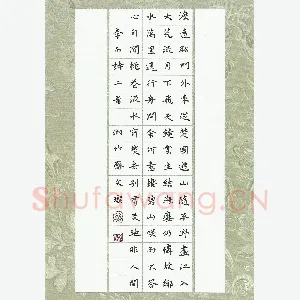 渡遠荊門外來從楚國遊山隨平野盡江入
大荒流月下飛天鏡雲生結海樓仍憐故鄉
水萬里送行舟問余何意棲碧山笑而不答
心自閒桃花流水窅然去別有天地非人間
李白詩二首
Shufawang.CN